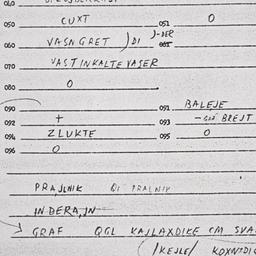 040
050 CUXT 051 O
060 VASNGRET ) DI )-DER 061
070 VAST IN KALTE VASER
080 O
090 091 BALEJE
092 + 093 BREJT
094 ZLUKTE 095 O
096 O
PRAJLNIK PRALNIK
INDERAJN
GRAF QGL KAJLAXDIKE CM SVA
/KEJLE/ KOXNTDIC